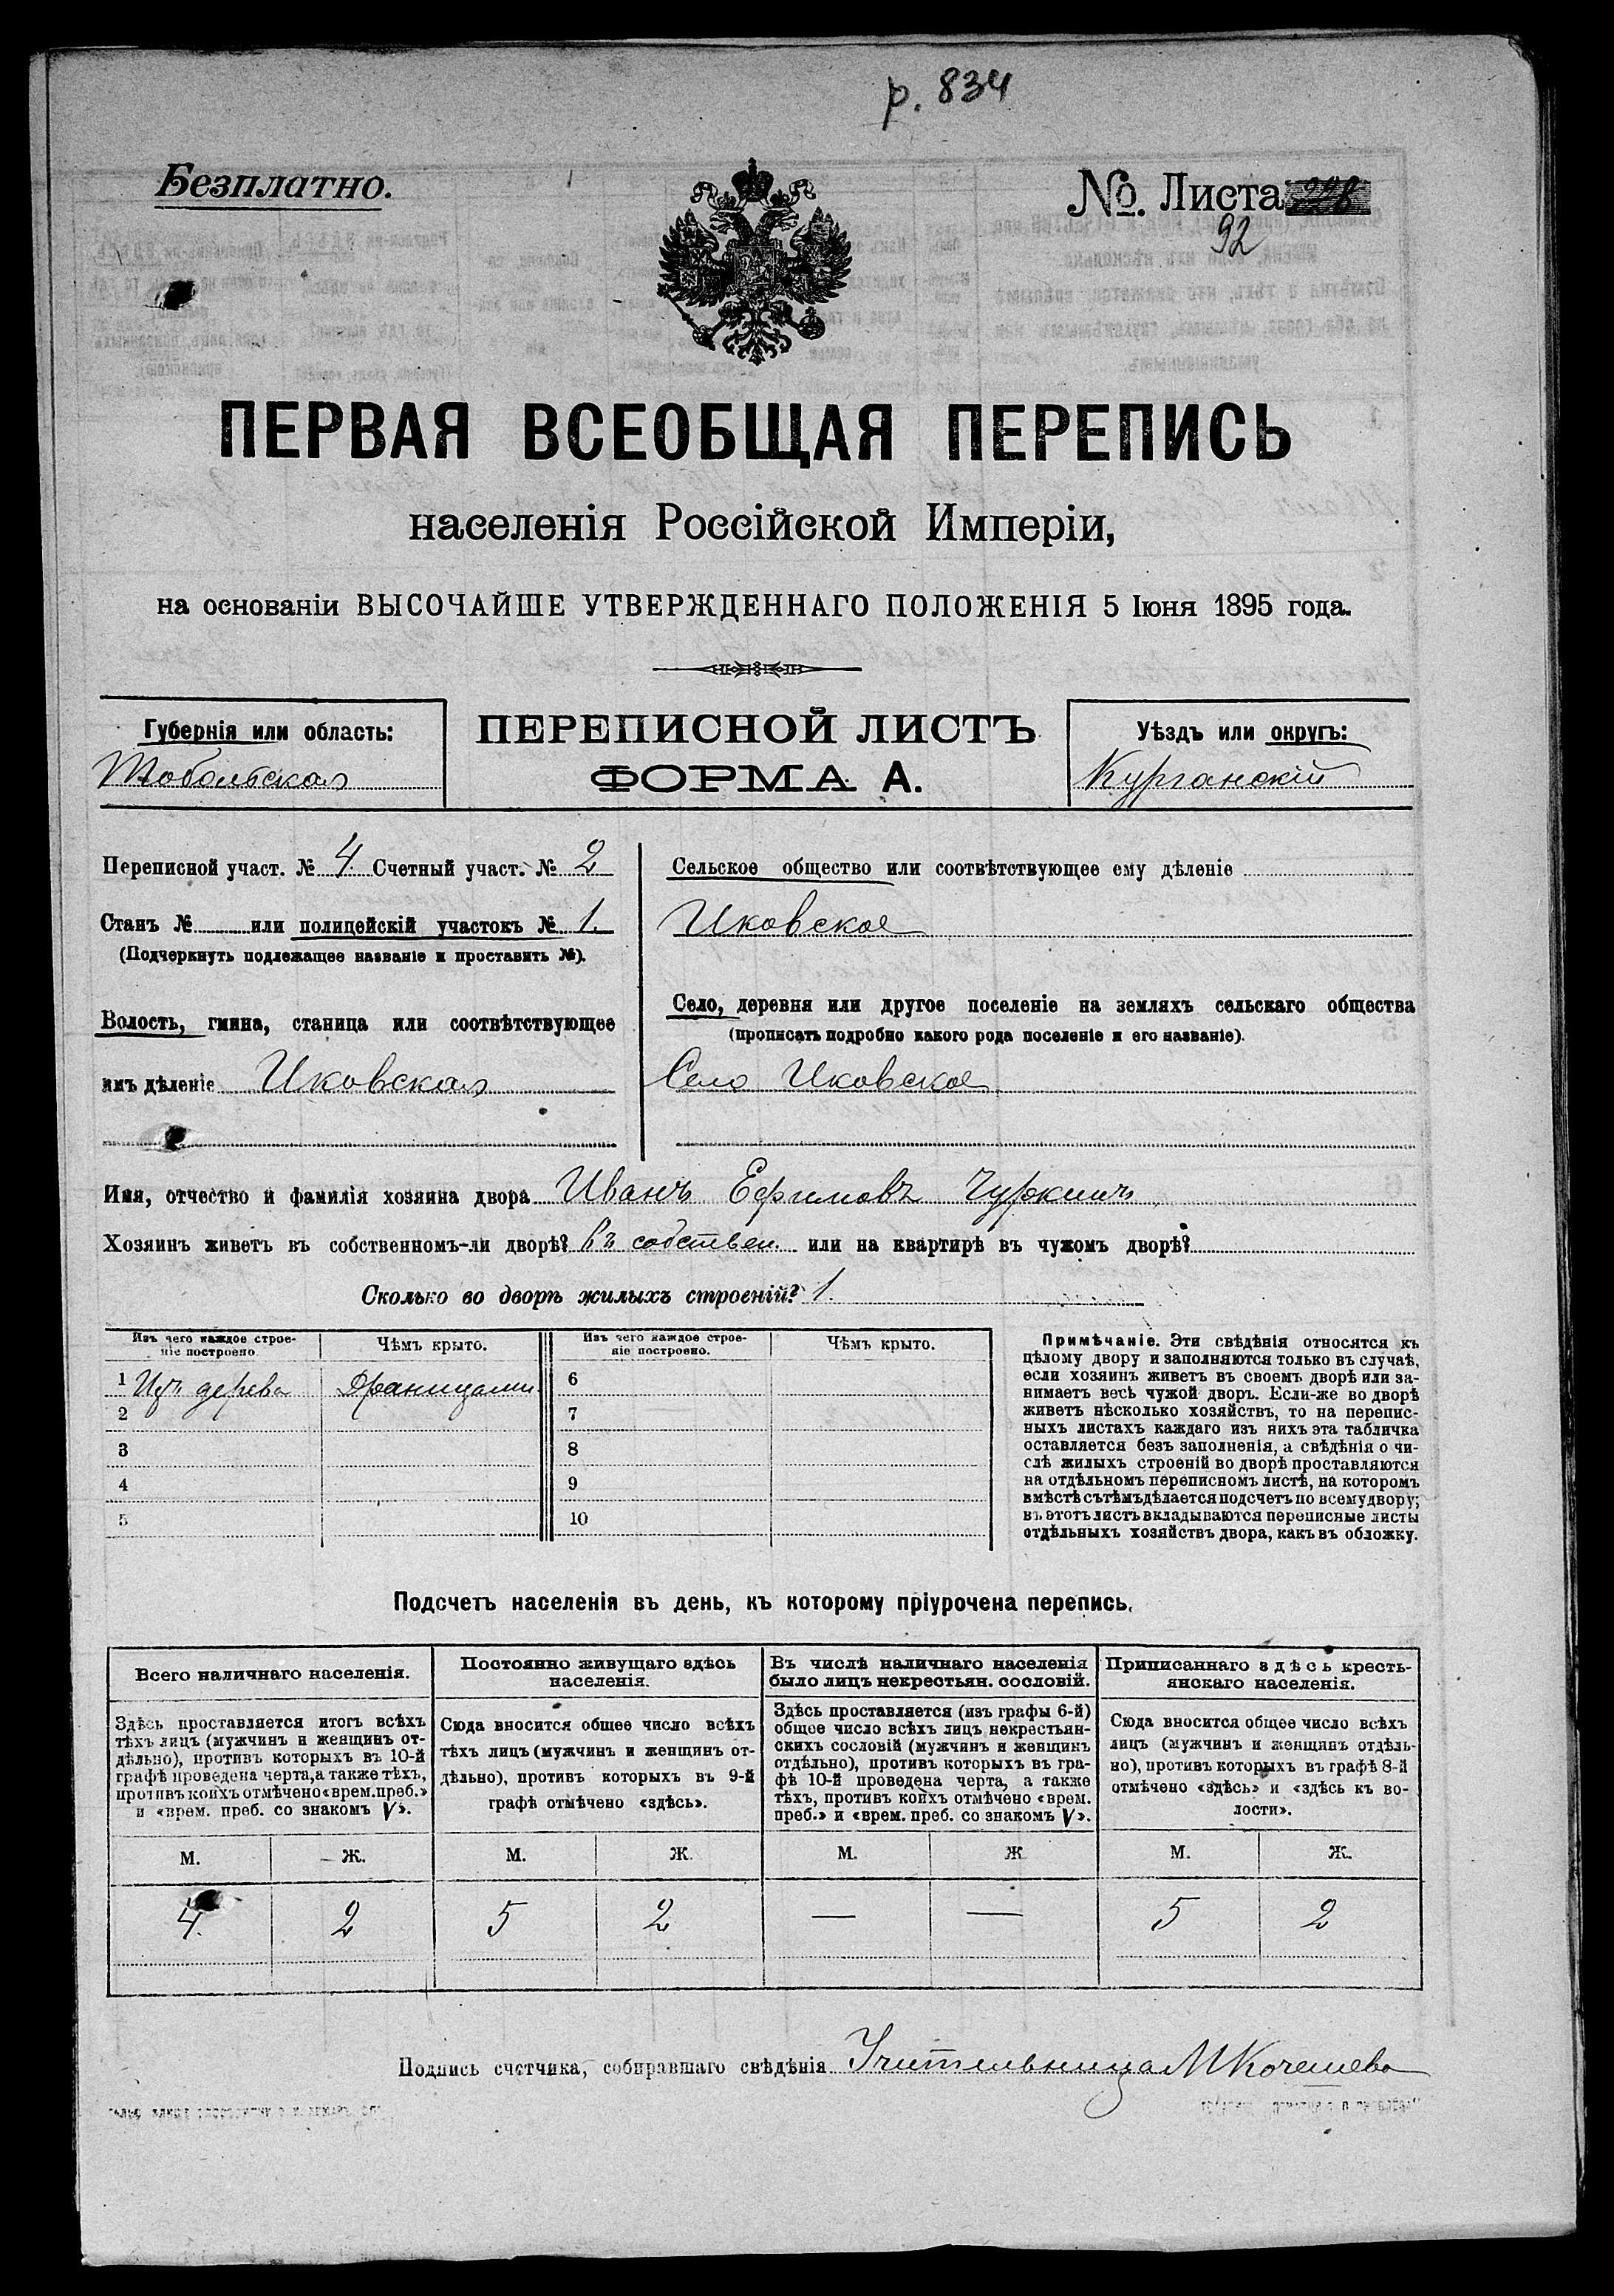 р. 834
Безплатно.
№. Листа 228
92
ПЕРВАЯ ВСЕОБЩАЯ ПЕРЕПИСЬ
населенія Россійской Имперіи,
на основаніи ВЫСОЧАЙШЕ УТВЕРЖДЕННАГО ПОЛОЖЕНІЯ 5 Іюня 1895 года.
Губернія или область:
Тобольская
ПЕРЕПИСНОЙ ЛИСТЪ
ФОРМА А.
Уѣздъ или округъ:
Курганскій
Переписной участ. № 4. Счетный участ. № 2
Станъ № или полицейскій участокъ № 1.
(Подчеркнуть подлежащее названіе и проставить №).
Волость, гмина, станица или соотвѣтствующее
имъ дѣленіе Иковская
Сельское общество или соотвѣтствующее ему дѣленіе
Иковское
Село, деревня или другое поселеніе на земляхъ сельскаго общества
(прописать подробно какого рода поселеніе и его названіе).
Село Иковское
Имя, отчество и фамилія хозяина двора Иванъ Ефимовъ Чуркинъ
Хозяинъ живетъ въ собственномъ-ли дворѣ? Въ собствен. или на квартирѣ въ чужомъ дворѣ?
Сколько во дворѣ жилыхъ строеній? 1.
Изъ чего каждое строе-
ніе построено
Чѣмъ крыто.
Изъ чего каждое строе-
ніе построено.
Чѣмъ крыто.
1 Изъ дерева Драницами 6
2 7
3 8
4 9
5 10
Примѣчаніе. Эти свѣдѣнія относятся къ
цѣлому двору и заполняются только въ случаѣ,
если хозяинъ живетъ въ своемъ дворѣ или за-
нимаетъ весь чужой дворъ. Если-же во дворѣ
живетъ нѣсколько хозяйствъ, то на перепис-
ныхъ листахъ каждаго изъ нихъ эта табличка
оставляется безъ заполненія, а свѣдѣнія о чи-
слѣ жилыхъ строеній во дворѣ проставляются
на отдѣльномъ переписномъ листѣ, на которомъ
вмѣстѣ съ тѣмъ дѣлается подсчетъ по всему двору;
въ этотъ листъ вкладываются переписные листы
отдѣльныхъ хозяйствъ двора, какъ въ обложку.
Подсчетъ населенія въ день, къ которому пріурочена перепись.
Всего наличнаго населенія.
Здѣсь проставляется итогъ всѣхъ
тѣхъ лицъ (мужчинъ и женщинъ от-
дѣльно), противъ которыхъ въ 10-й
графѣ проведена черта, а также тѣхъ,
противъ коихъ отмѣчено «врем. преб.»
и «врем. преб. со знакомъ V».
Постоянно живущаго здѣсь
населенія.
Сюда вносится общее число всѣхъ
тѣхъ лицъ (мужчинъ и женщинъ от-
дѣльно), противъ которыхъ въ 9-й
графѣ отмѣчено «здѣсь».
Въ числѣ наличнаго населенія
было лицъ некрестьян. сословій.
Здѣсь проставляется (изъ графы 6-й)
общее число всѣхъ лицъ некрестьян-
скихъ сословій (мужчинъ и женщинъ
отдѣльно), противъ которыхъ въ гра-
фѣ 10-й проведена черта, а также
тѣхъ, противъ коихъ отмѣчено «врем.
преб.» и «врем. преб. со знакомъ V».
Приписаннаго здѣсь кресть-
янскаго населенія.
Сюда вносится общее число всѣхъ
лицъ (мужчинъ и женщинъ отдѣль-
но), противъ которыхъ въ графѣ 8-й
отмѣчено «здѣсь» и «здѣсь къ во-
лости».
М. Ж. М. Ж. М. Ж М. Ж.
4. 2 5 2 — — 5 2
Подпись счетчика, собиравшаго свѣдѣнія Учительница М Кочешева